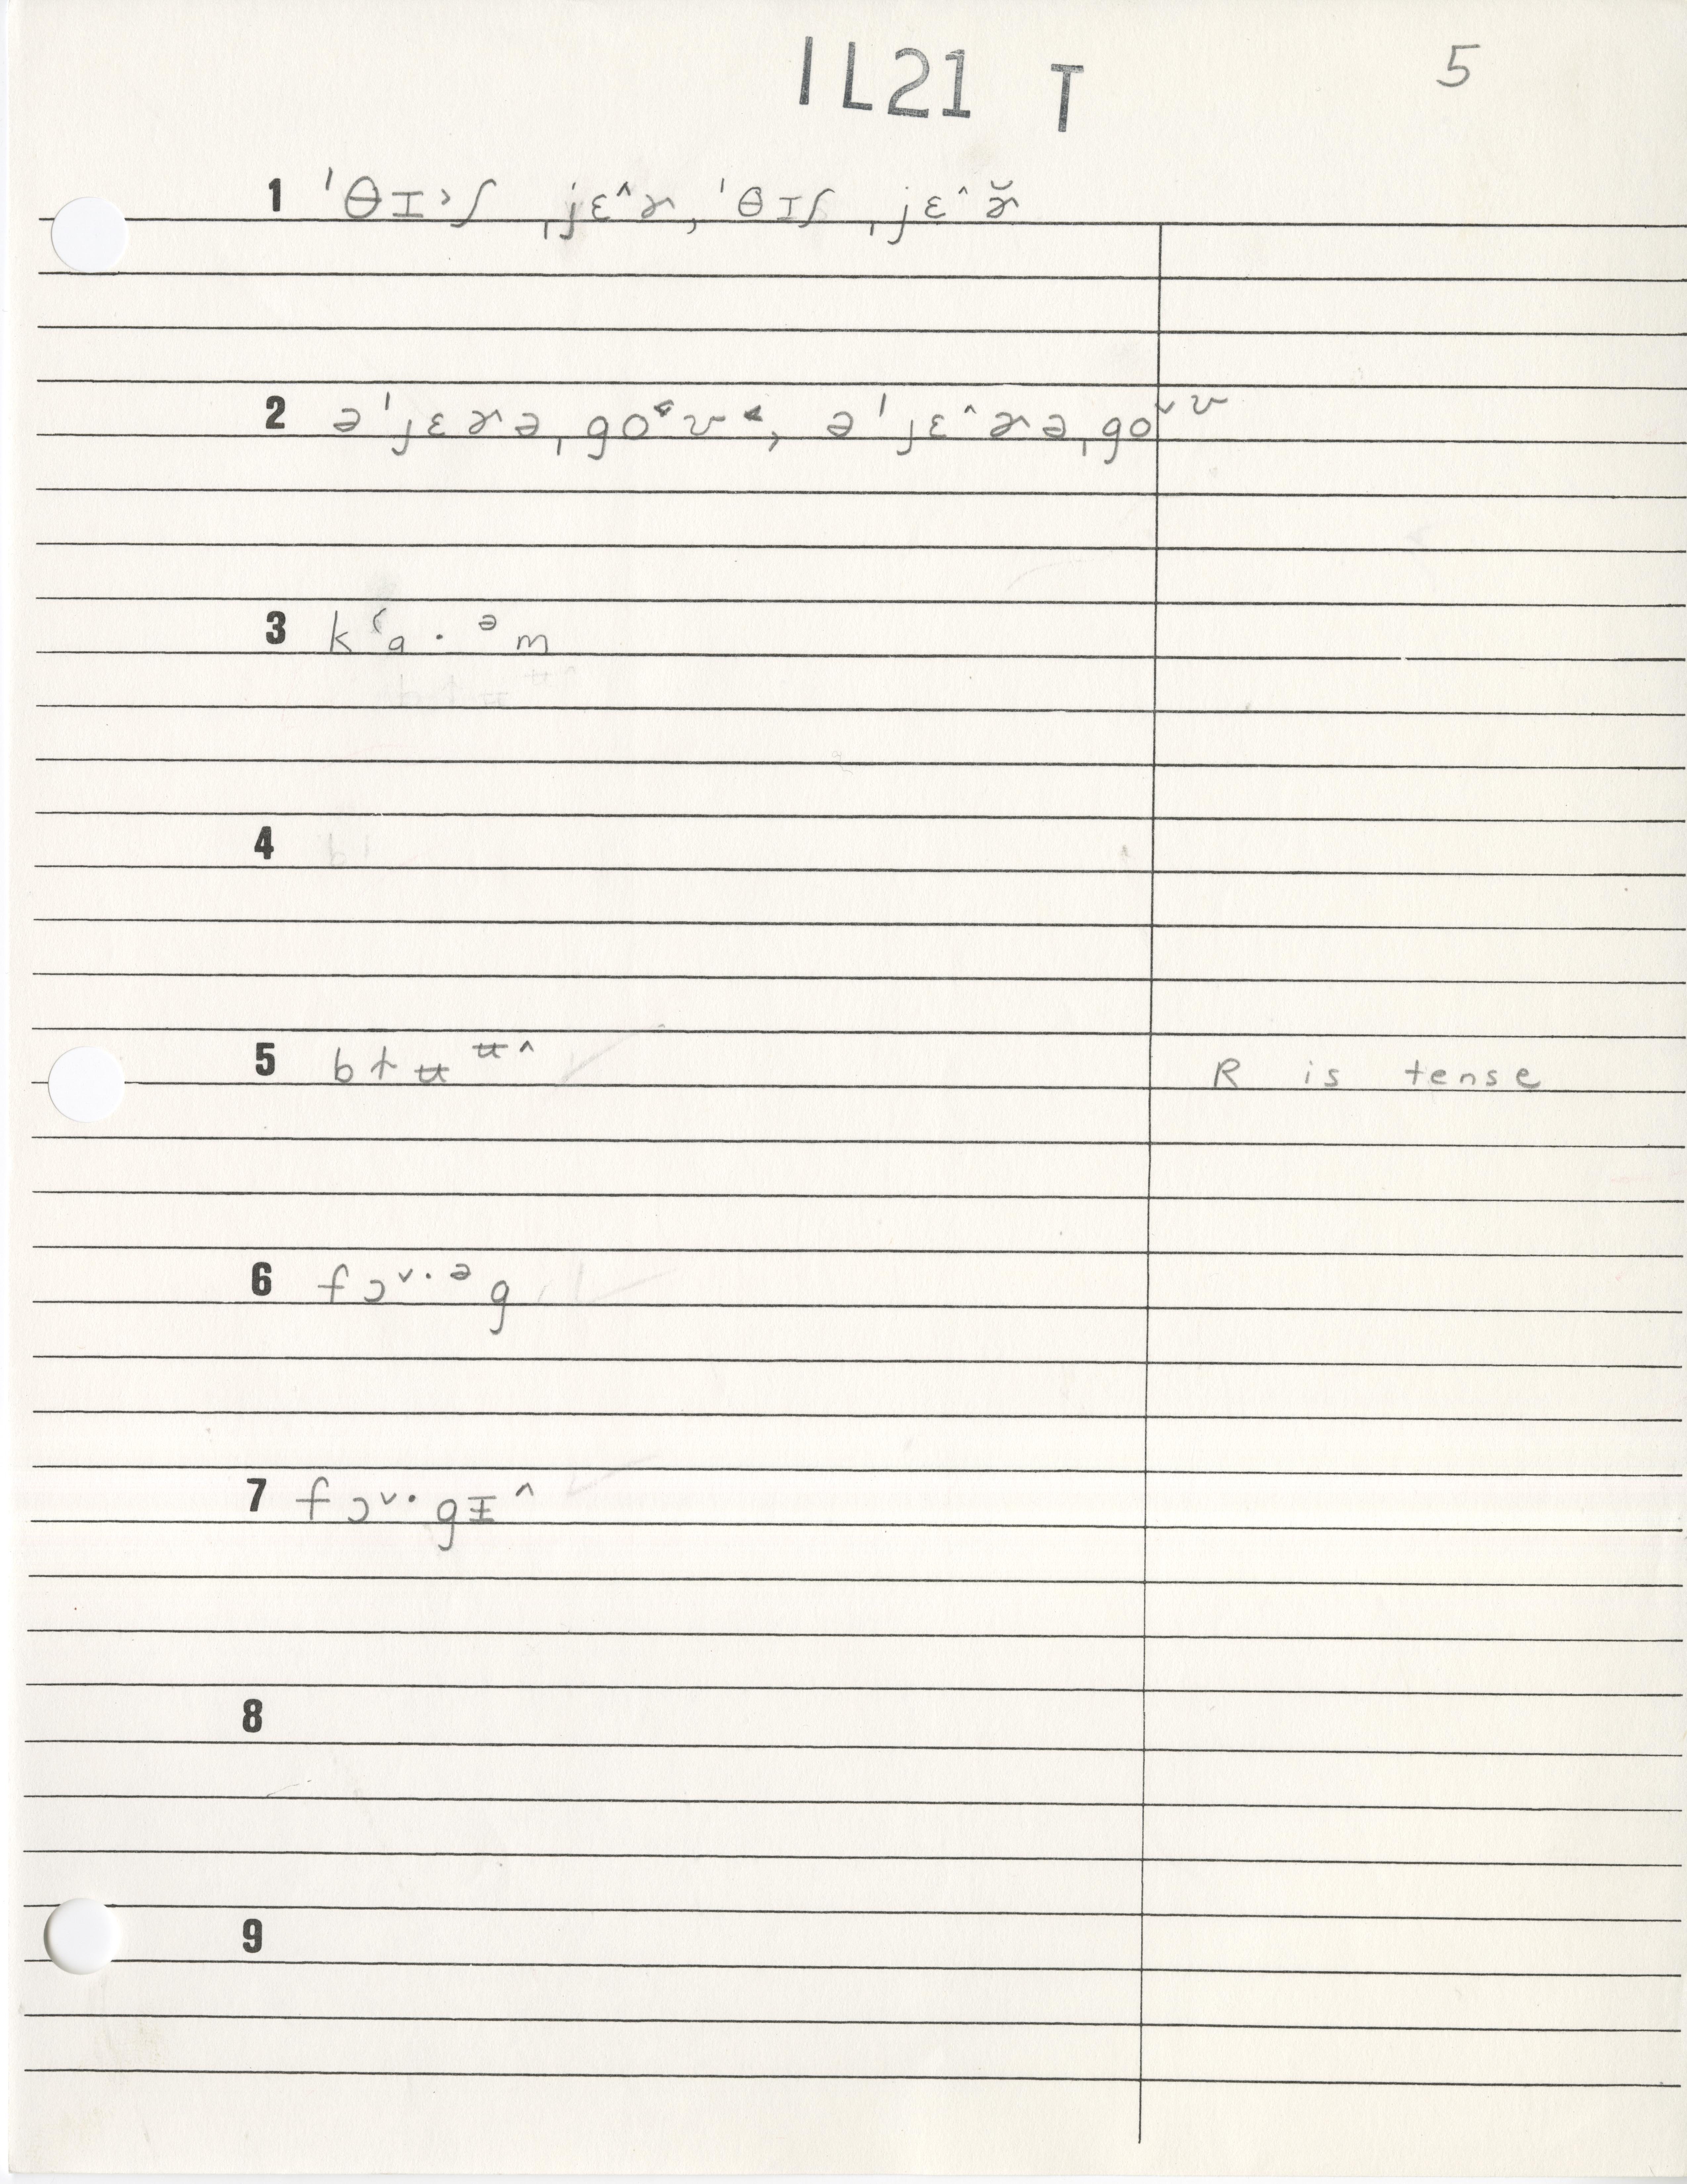 IL21 T 5
1 ˈθɪ˃ʃ ˌjɛ^ɚ, ˈθɪʃ ˌjɛ^ɚ̆
2 əˈjɛɚəˌgo˂ʊ˂, əˈjɛ^ɚəˌgo˅ʊ
3 kʻɑ·ᵊm
4
5 bɫʉʉ^ R is tense
6 fɔ˅·ᵊg
7 fɔ˅·gɪ̵^
8
9